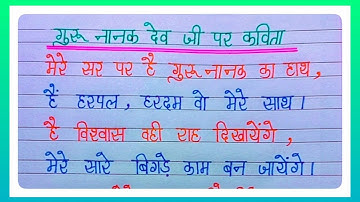 गुरु नानक देव जी पर कविता
मेरे सर पर है गुरु नानक का हाथ,
हैं हरपल, हरदम वो मेरे साथ।
है विश्वास वही राह दिखायेंगे,
मेरे सारे बिगड़े काम बन जायेंगे।